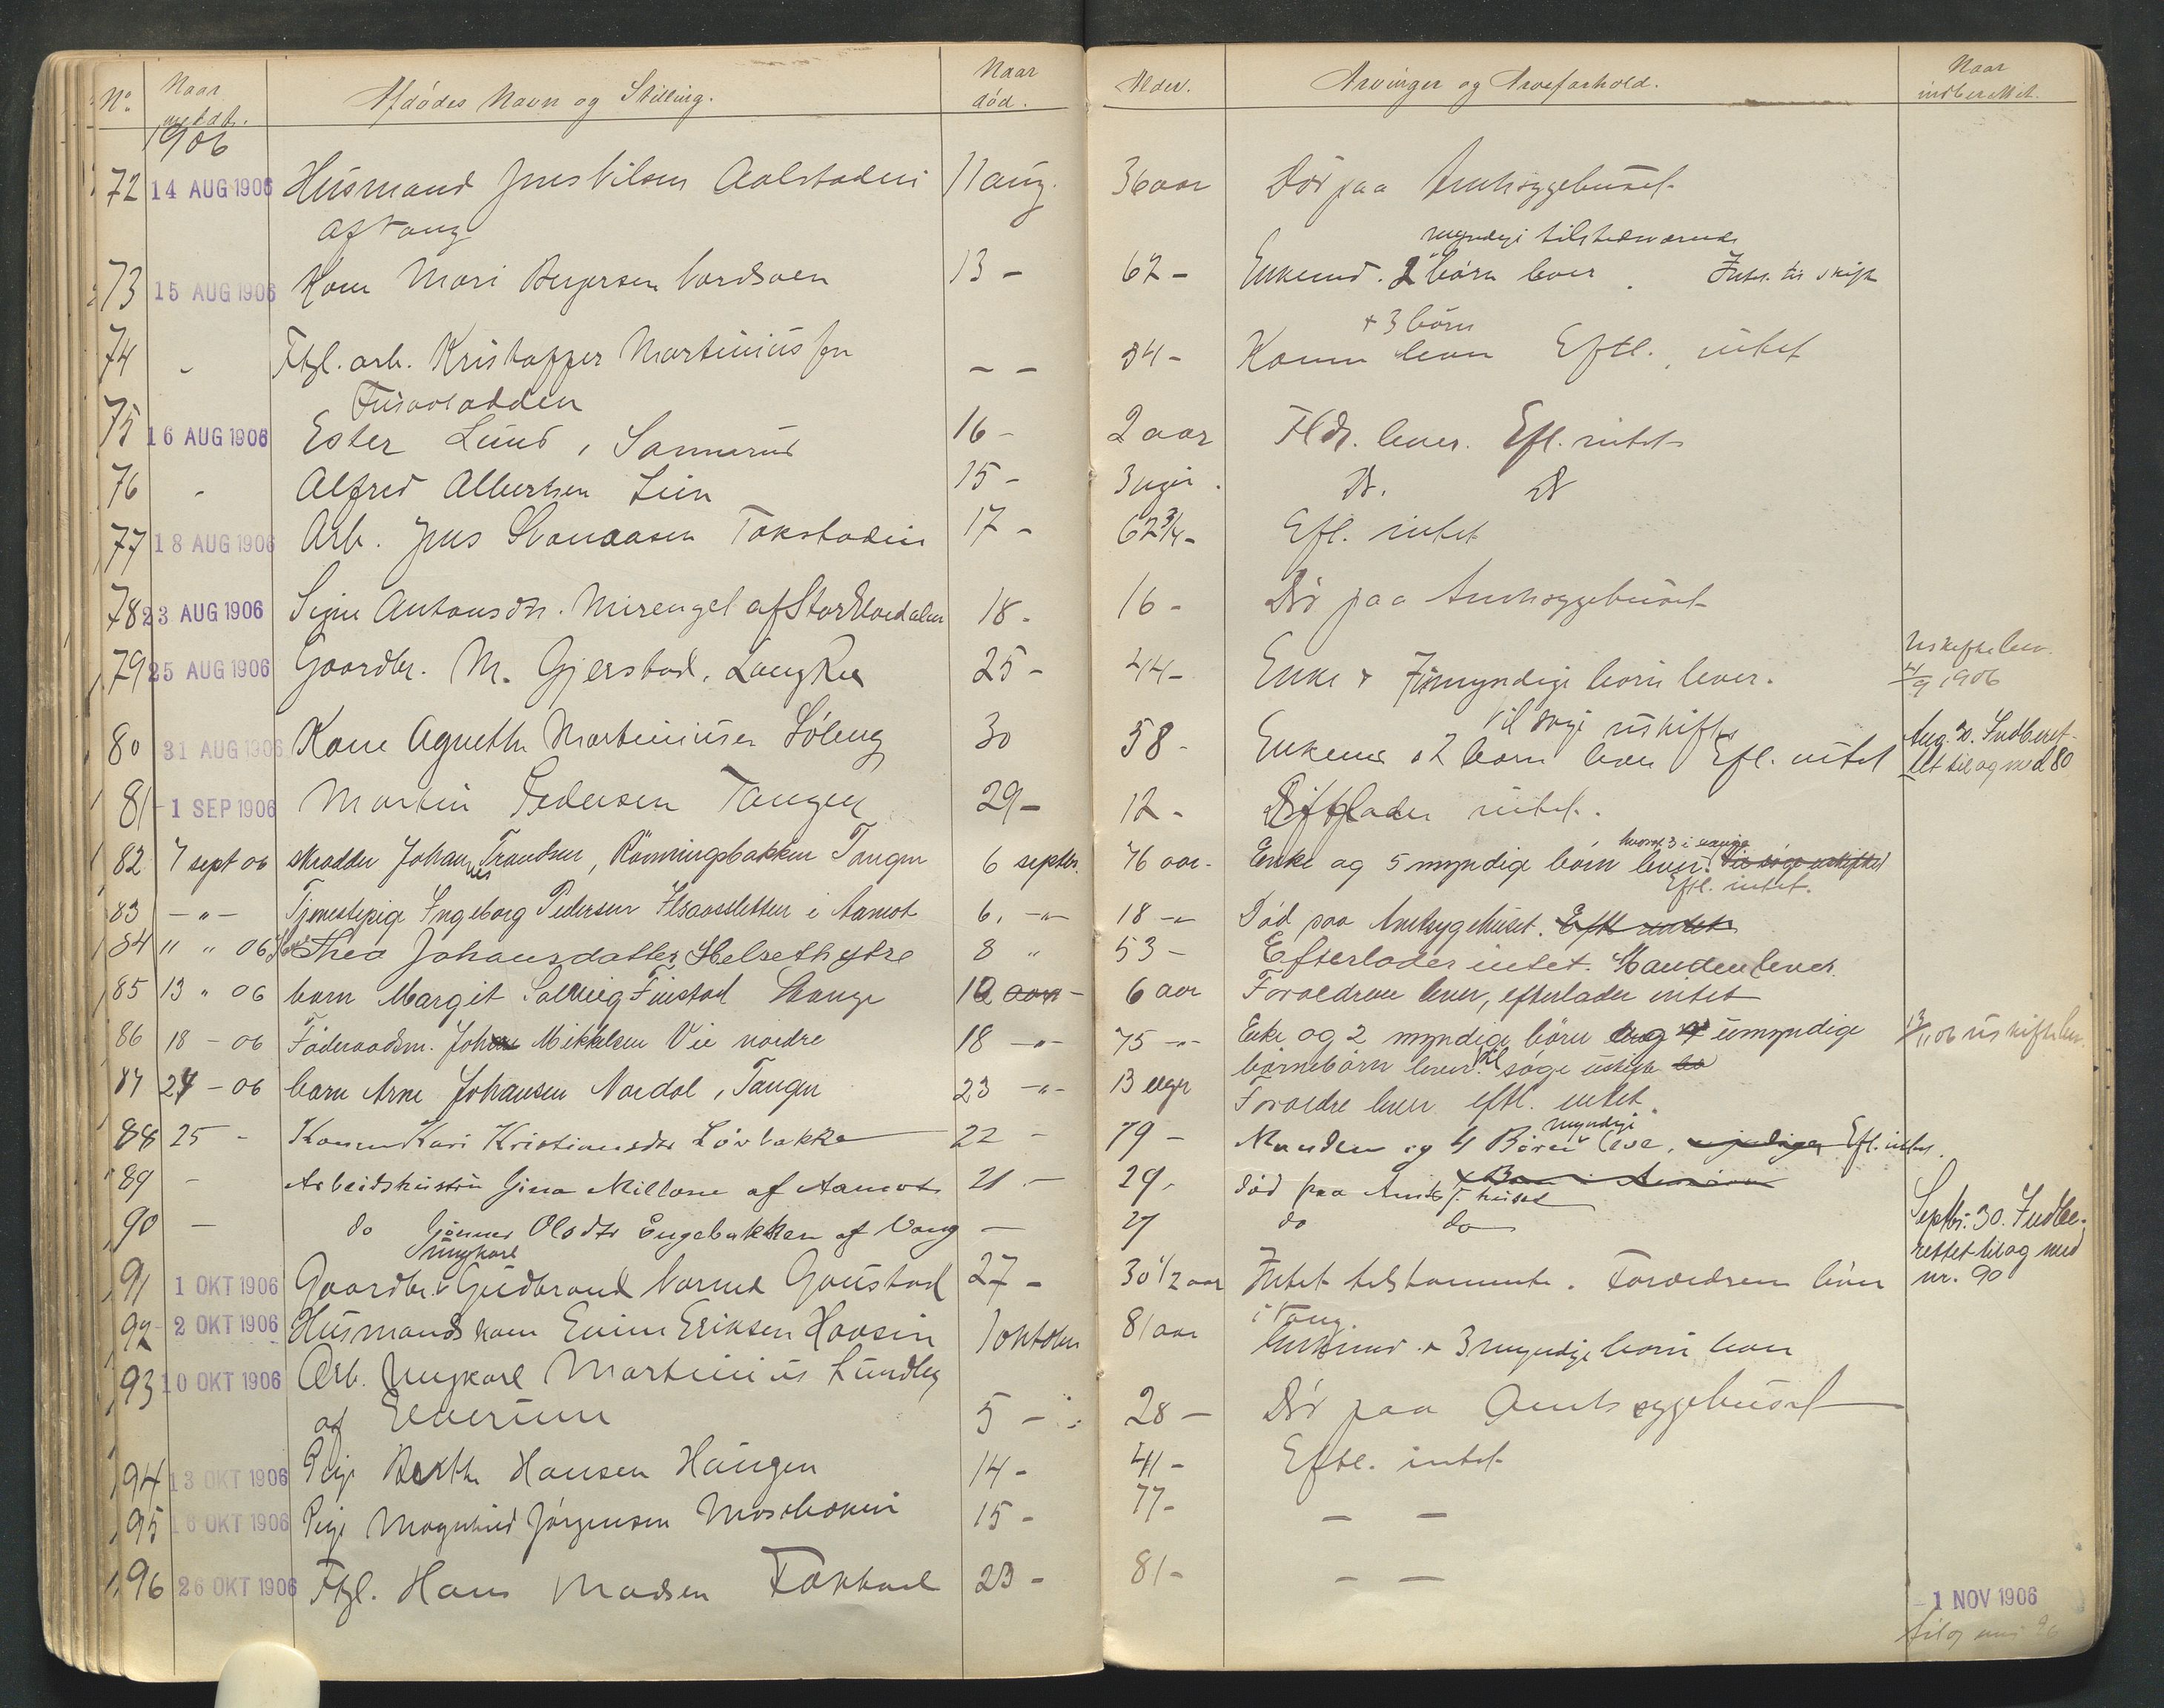 No. Naar meddt. Afdødes Navn og Stilling. Naar død. Alder. Arvinger og Arveforhold. Naar indberettet.
1906
72 14 AUG 1906 Husmand Jens Nilsen Aalstadeie 11 aug. 36 aar Død paa Amtssygehuset
af Vang
myndige tilstedeværende
73 15 AUG 1906 Kone Mari Bergersen 13 - 62 - Enkemd. 2 børn lever.
+ 3 børn
74 - Ftgl. arb. Kristoffer Martiniussen - - 84 - Konen lever Eftl. intet
75 16 AUG 1906 Ester Lund, Sannerud 16 - 2 aar Fldr. lever. Efl. intet
76 - Alfred Albertsen Lien 15 - 3 uger. Do. Do
77 18 AUG 1906 Arb. Jens Svenaasen Tokstadeie 17 - 62 3/4 - Efl. intet
78 23 AUG 1906 Signe Antonsdtr. Mirengel af Storelvedalen 18 - 16 - Død paa Amtssygehuset
79 25 AUG 1906 Gaardbr. M. Gjerstad, Langrud 25 - 44 - Enke + 7 umyndige børn lever. Uskiftebev. 4/9 1906
vil søge uskifte
80 31 AUG 1906 Kone Agnethe Martiniusen Løleng 30 58 - Enkemd + 2 børn lever Efl. intet Aug. 30. Indberet-
tet til og med 80
81 - 1 SEP 1906 Martin Pedersen Tangen 29 - 12 - Efterlader intet.
hvoraf 3 i
82 7 sept 06 skrædder Johannes Trondsen, Rønningsbakken Tangen 6 septbr. 76 aar - Enke og 5 myndige børn lever. vil søge uskiftet
Eftl. intet.
83 - " - Tjenestepige Ingeborg Pedersen i Aamot 6. - " - 18 - " Død paa Amtsygehuset. Eftl intet
84 11 " 06 Thea Johansdatter Helseth østre 8 " 53 - Efterlader intet. Manden lever.
85 13 " 06 barn Margit Solveig Finstad Stange 12 - 6 aar Forældrene lever, efterlader intet
86 18 - 06 Føderaadsm. Johan Mikkelsen Vie nordre 18 - " - 75 - " - Enke og 2 myndige børn og 4 umyndige 13/11 06 uskiftebev.
børnebørn lever. vil søge uskifte
87 24 - 06 barn Arne Johansen Nordal, Tangen 23 - " - 13 uger Forældre lever eftl. intet.
myndige
88 25 - Konen Kari Kristiansdtr Løvbakke 22 - 79 - Manden og 4 Børn leve, Efl. intet.
89 - Arbeidshustru Gina Millone af Aamot 21. - 29 - død paa Amts s. huset
90 - do Gunner Olsdtr Engebakken af Vang - 27 do do Septbr. 30. Indbe-
rettet til og med
nr. 90
Ungkarl
91 1 OKT 1906 Gaardbr. Gudbrand Gaustad 27 - 30 1/2 aar Intet testamente. Forældrene lever
i Vang.
92 2 OKT 1906 Husmandskone Eriksen 1 oktober 81 aar Enkemd + 3 myndige børn lever
93 10 OKT 1906 Arb. Ungkarl Martinius Lundby
af Elverum 5 - 28 - Død paa Amtssygehuset
94 13 OKT 1906 Pige Berthe Hansen Haugen 14 - 41 - Eftl. intet
95 16 OKT 1906 Pige Magnhild Jørgensen 15 - 77 - - -
96 26 OKT 1906 Ftgl. Hans Madsen 23 - 81 - - -
- 1 NOV 1906
til og med 96